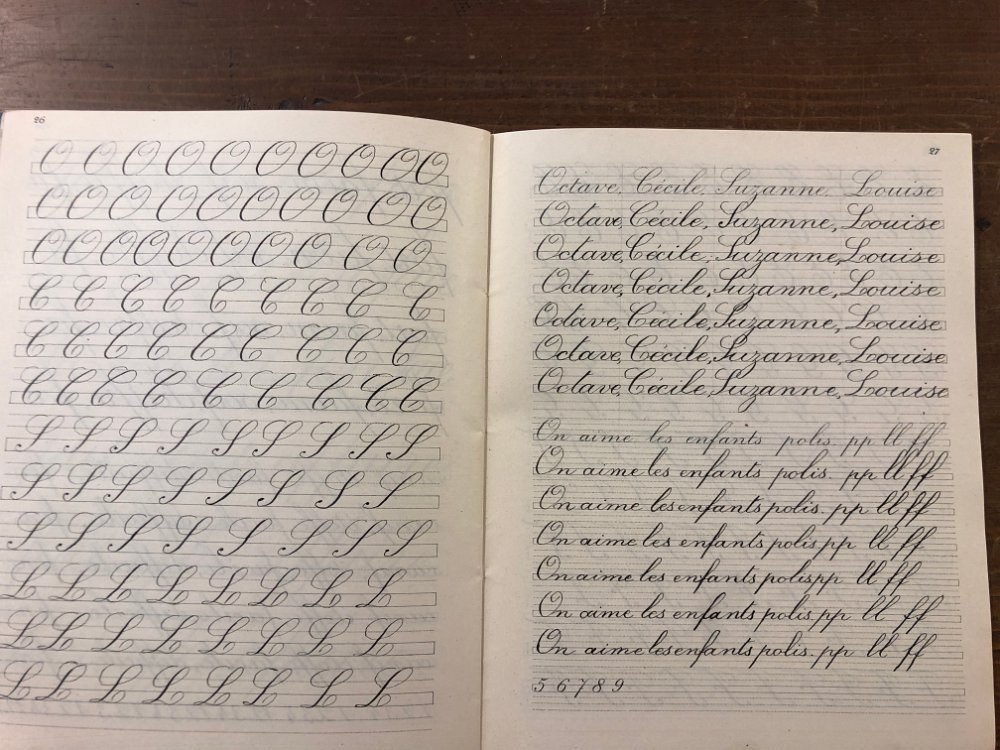 26
O O O O O O O O O O
O O O O O O O O O O
O O O O O O O O O O
C C C C C C C C C
C C C C C C C C C
C C C C C C C C C
S S S S S S S S S
S S S S S S S S
S S S S S S S S
L L L L L L L L
L L L L L L L L
L L L L L L L L
27
Octave, Cécile, Suzanne, Louise
Octave, Cécile, Suzanne, Louise
Octave, Cécile, Suzanne, Louise
Octave, Cécile, Suzanne, Louise
Octave, Cécile, Suzanne, Louise
Octave, Cécile, Suzanne, Louise
Octave, Cécile, Suzanne, Louise
On aime les enfants polis. pp ll ff
On aime les enfants polis. pp ll ff
On aime les enfants polis. pp ll ff
On aime les enfants polis. pp ll ff
On aime les enfants polis pp ll ff
On aime les enfants polis. pp ll ff
On aime les enfants polis. pp ll ff
5 6 7 8 9